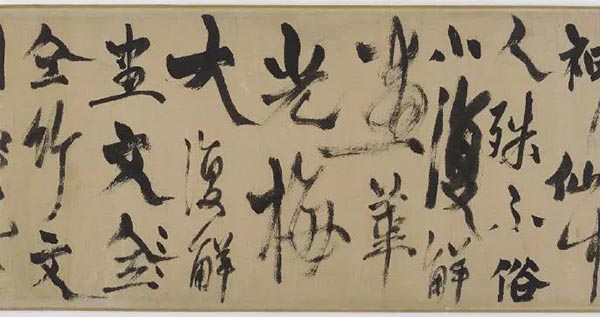 神仙中
人殊不俗
小復解
畫華
光梅
大復解
畫文金
全竹文